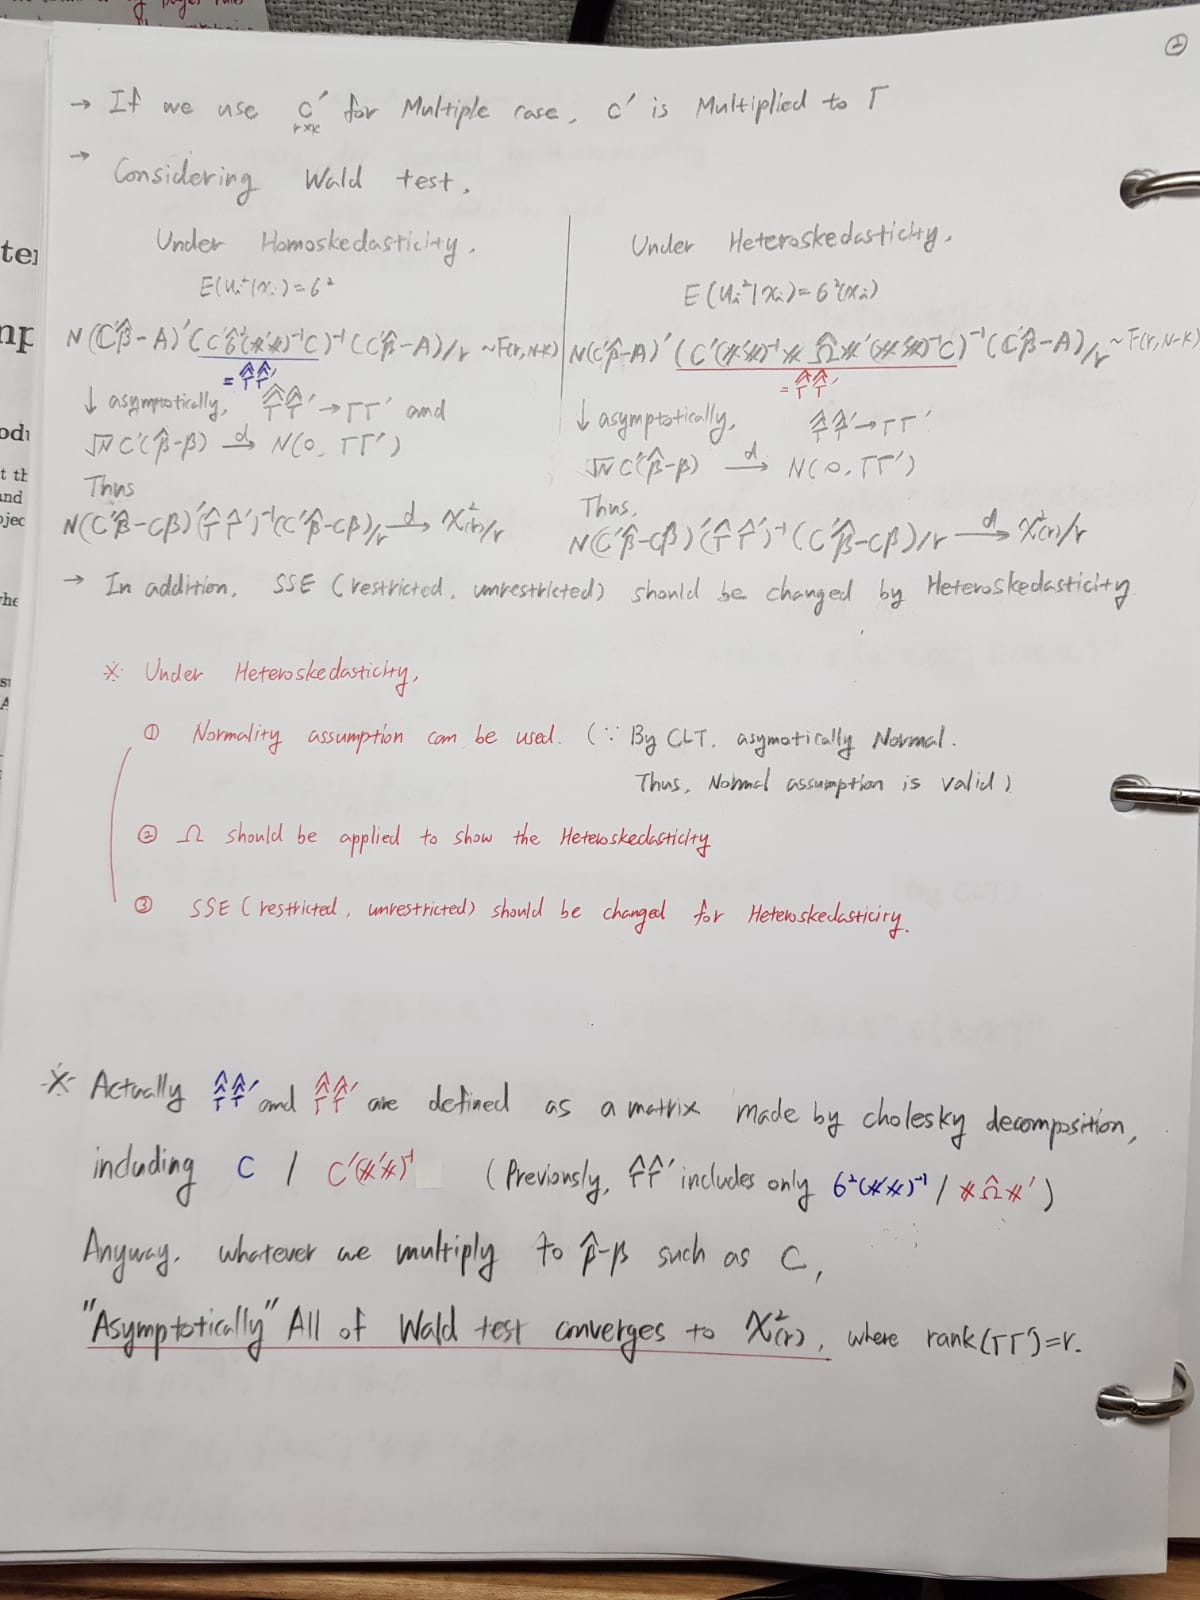 ②
→ If we use C′ for Multiple case, C′ is Multiplied to Γ
r×k
→ Considering Wald test,
Under Homoskedasticity,
E(Ui²|Xi)=б²
N(C′β̂-A)′(C′б̂²(X′X)⁻¹C)⁻¹(C′β̂-A)/r ~F(r,N-K)
= Γ̂Γ̂′
↓ asymptotically, Γ̂Γ̂′→ΓΓ′ and
√N C′(β̂-β) →d N(0, ΓΓ′)
Thus
N(C′β̂-Cβ)′(Γ̂Γ̂′)⁻¹(C′β̂-Cβ)/r →d X²(r)/r
Under Heteroskedasticity,
E(Ui²|Xi)=б²(Xi)
N(C′β̂-A)′(C′(X′X)⁻¹X Ω̂X′(X′X)⁻¹C)⁻¹(C′β̂-A)/r ~F(r,N-K)
= Γ̂Γ̂′
↓ asymptotically, Γ̂Γ̂′→ΓΓ′
√N C′(β̂-β) →d N(0, ΓΓ′)
Thus,
N(C′β̂-Cβ)′(Γ̂Γ̂′)⁻¹(C′β̂-Cβ)/r →d X²(r)/r
→ In addition, SSE (restricted, unrestricted) should be changed by Heteroskedasticity
※ Under Heteroskedasticity,
① Normality assumption can be used. (∵ By CLT. asymotically Normal.
Thus, Normal assumption is valid)
② Ω should be applied to show the Heteroskedasticity
③ SSE (restricted, unrestricted) should be changed for Heteroskedasticiry.
※ Actually Γ̂Γ̂′ and Γ̂Γ̂′ are defined as a matrix made by cholesky decomposition,
including C / C′(X′X)⁻¹ (Previously, Γ̂Γ̂′ includes only б²(X′X)⁻¹ / XΩ̂X′)
Anyway. whatever we multiply to β̂-β such as C,
"Asymptotically" All of Wald test converges to X²(r), where rank(ΓΓ′)=r.